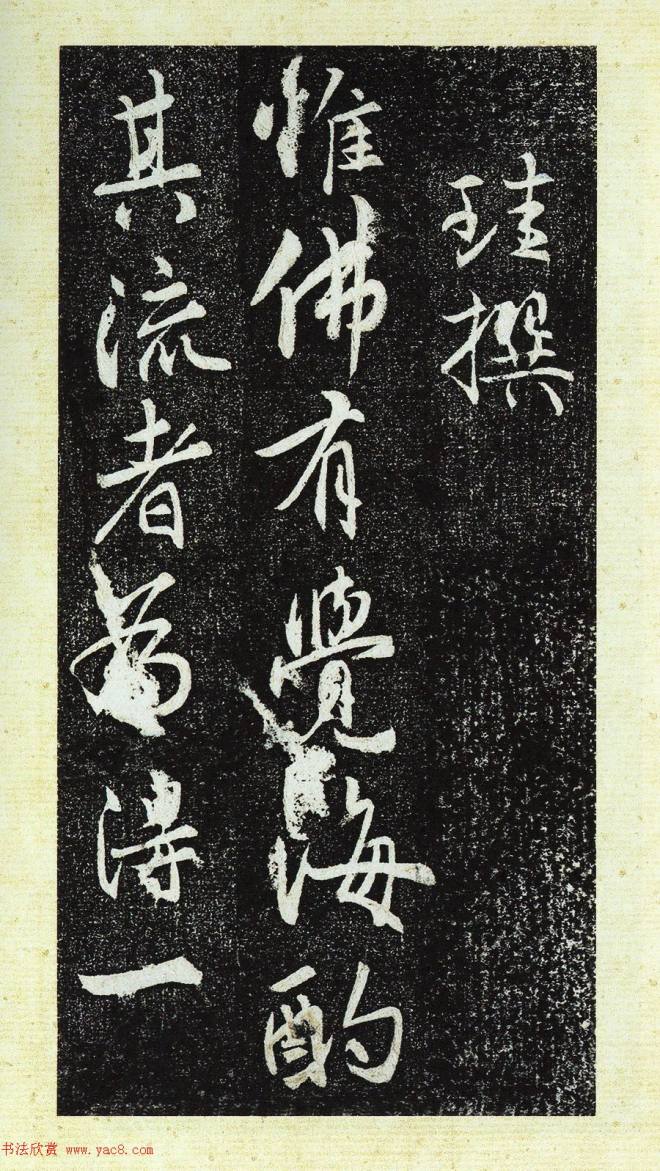 珪撰
惟佛有覺海酌
其流者得一
书法欣赏 www.yac8.com